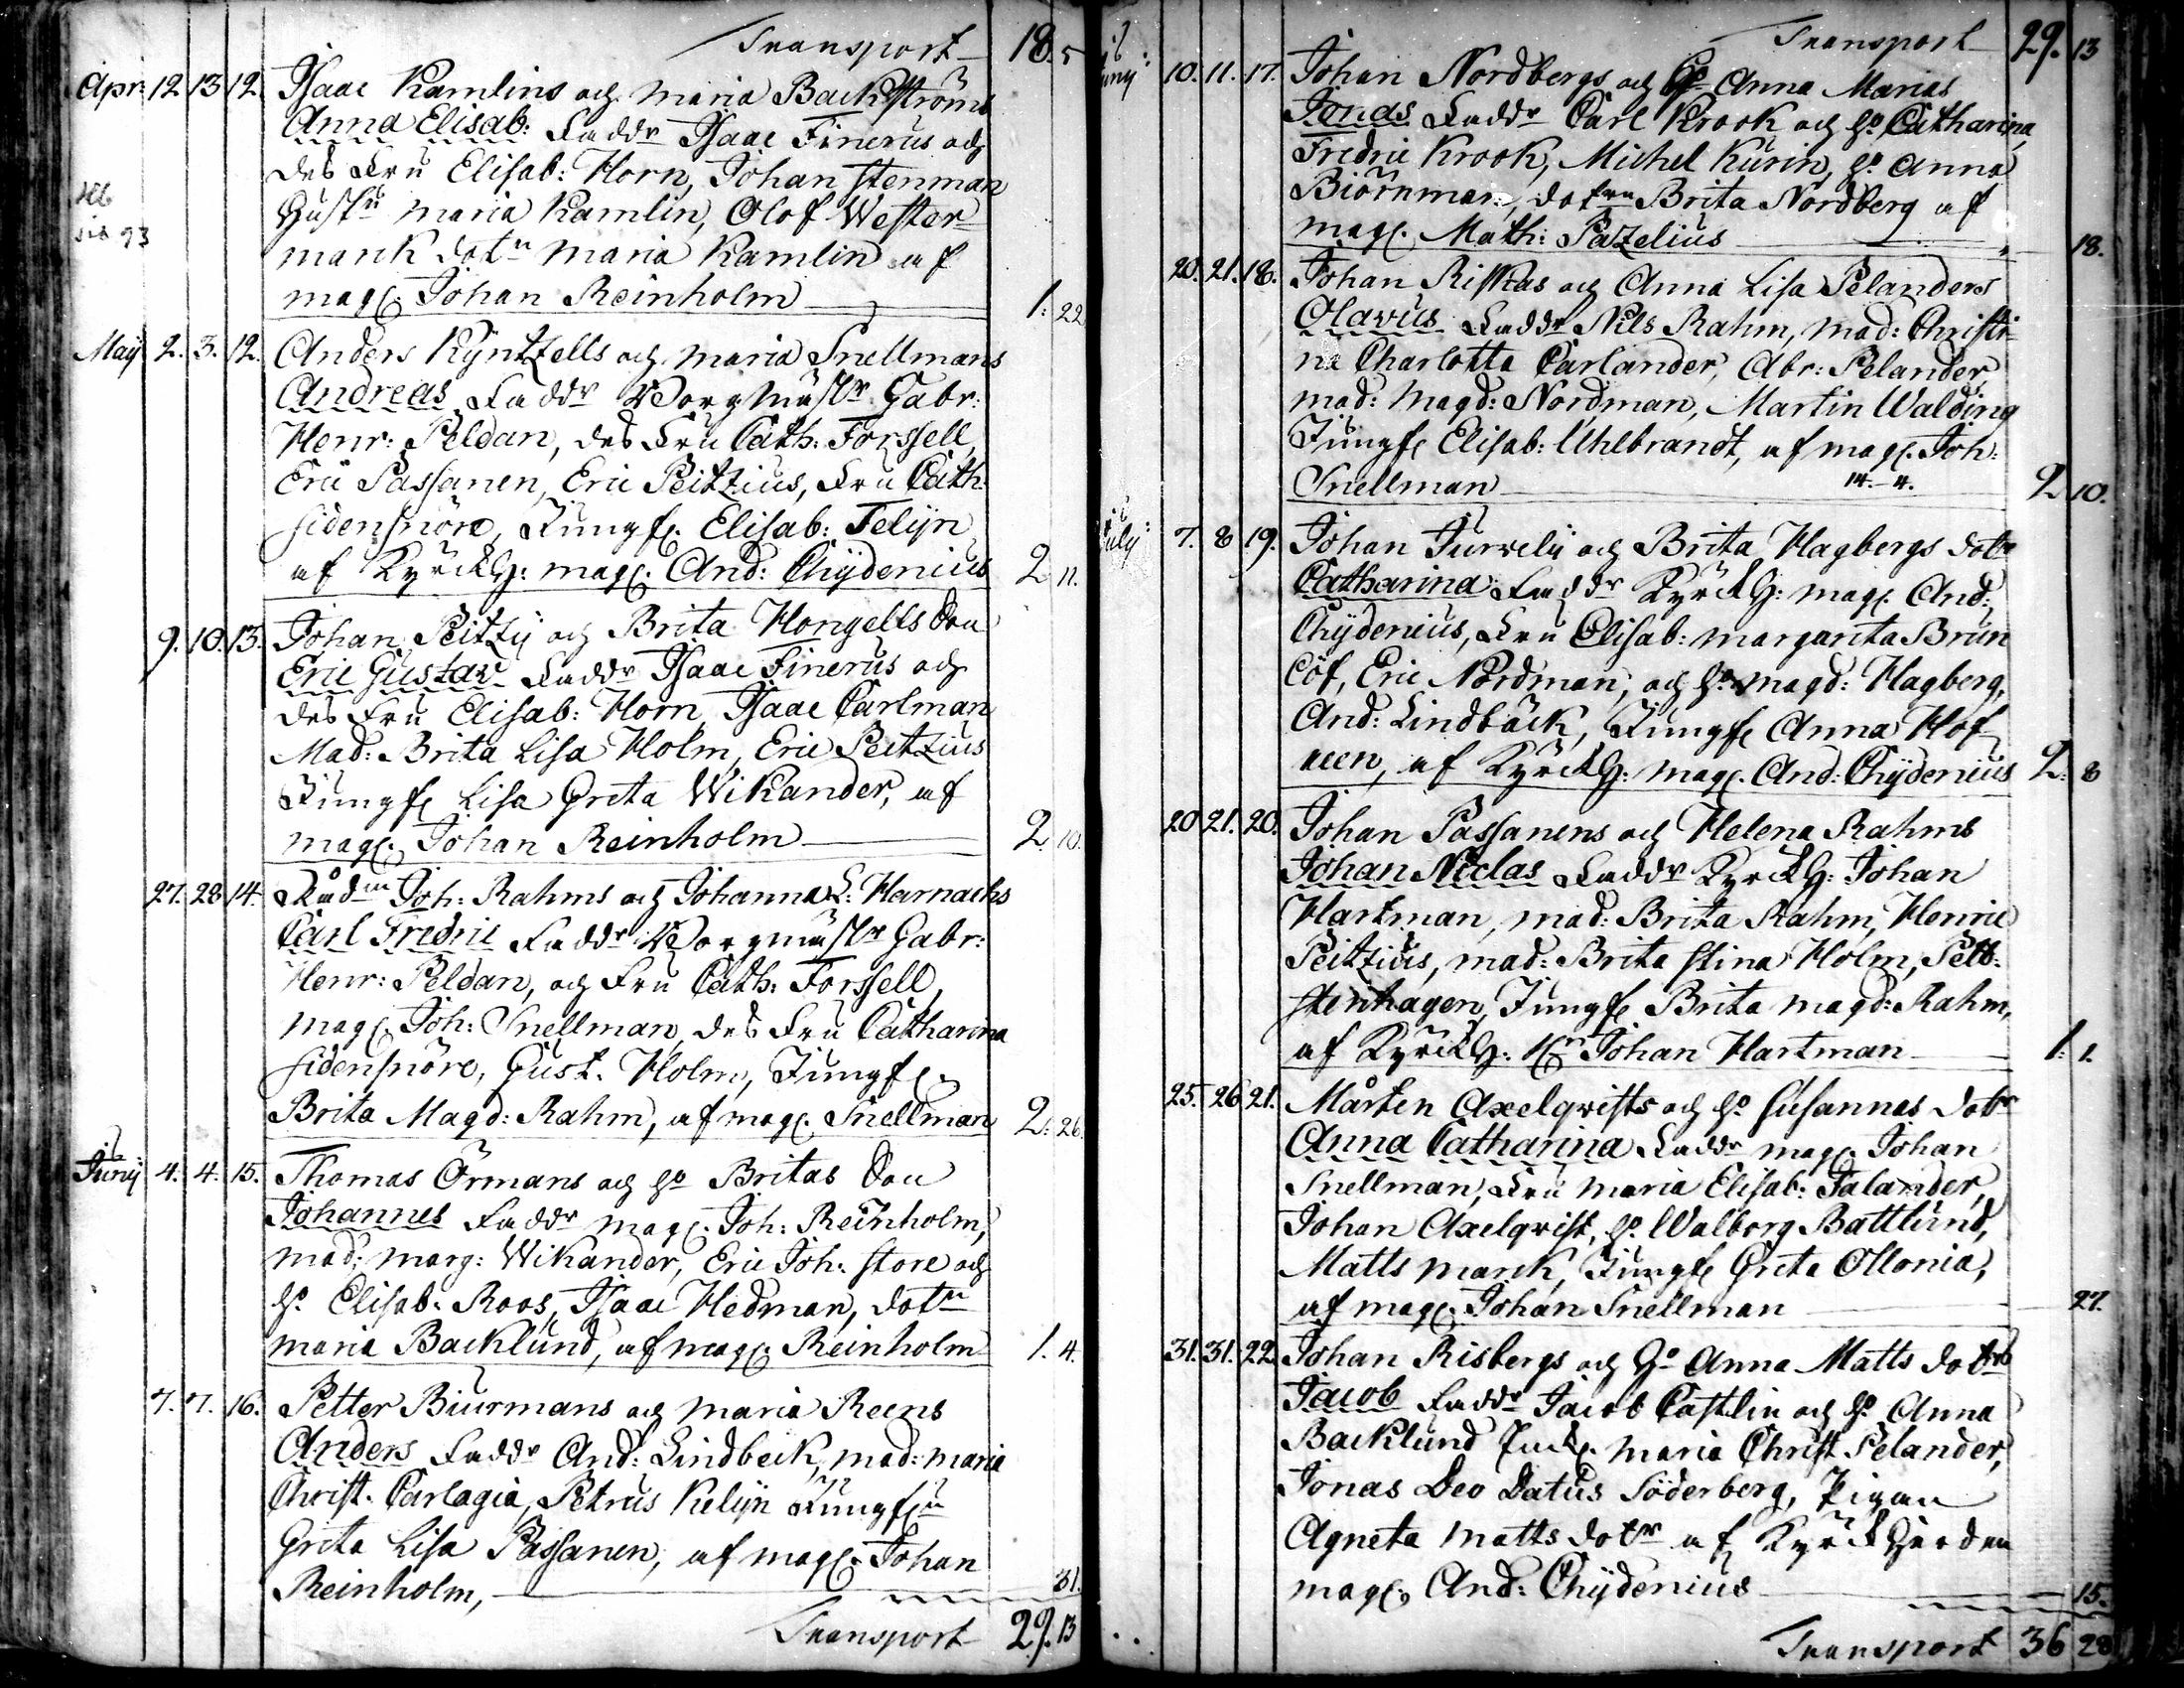 Transport 18. 5
Apr: 12 13 12. Isaac Kamlins och Maria Backströms
Anna Elisab: Faddr Isaac Finerus och
des Fru Elisab: Horn, Johan Stenman
Hustru Maria Kamlin, Olof Wester-
marck dotr Maria Kamlin af
mag. Johan Reinholm 1: 22
Maij 2. 3. 12. Anders Kyntzells och Maria Snellmans
Andreas Faddr Borgmästr Gabr:
Henr: Peldan, des Fru Cath: Forssell,
Eric Passanen, Eric Peitzius, Fru Cath:
Sidensnöre, Jungf. Elisab: Felijn
af KyrckH: mag. And: Chydenius 2 11.
9. 10. 13. Johan Peitzij och Brita Hongells Son
Eric Gustav Faddr Isaac Finerus och
des Fru Elisab: Horn, Isaac Carlman
Mad: Brita Lisa Holm, Eric Peitzius
Jungf. Lisa Greta Wikander, af
mag. Johan Reinholm 2. 10.
27. 28 14. Rådm Joh: Rahms och Johanna L: Harnachs
Carl Fredric Faddr Borgmästr Gabr:
Henr: Peldan, och Fru Cath: Forssell,
mag. Joh: Snellman, des Fru Catharina
Sidensnöre, Gust. Holm, Jungf.
Brita Magd: Rahm, af mag. Snellman 2: 26.
Junij 4. 4. 15. Thomas Örmans och H: Britas Son
Johannes Faddr mag. Joh: Reinholm,
mad: marg: Wikander, Eric Joh: Store och
H: Elisab: Roos, Isaac Hedman, dotr
Maria Backlund, af mag. Reinholm 1. 4.
7. 7. 16. Petter Biurmans och Maria Reens
Anders Faddr And: Lindbeck, mad: maria
Christ. Carlagia, Petrus Kelijn Jungf.
Greta Lisa Passanen, af mag. Johan
Reinholm, 31.
Transport 29. 13
Transport 29. 13
Junij: 10. 11. 17. Johan Nordbergs och H: Anna Marias
Jonas Faddr Carl Krook och H: Catharina,
Fredric Krook, Michel Kurin, H: Anna
Biörnman, dotren Brita Nordberg af
mag. Math: Pazelius 18.
20. 21. 18. Johan Riskas och Anna Lisa Pelanders
Olavus Faddr Nils Rahm, Mad: Christi-
na Charlotta Carlander, Abr: Pelander
mad: Magd: Nordman, Martin Walding
Jungf. Elisab: Uhlbrandt, af mag. Joh:
Snellman 14.-4. 2 10.
July: 7. 8 19. Johan Jurvelij och Brita Hagbergs dotr
Catharina Faddr KyrckH: mag. And:
Chydenius, Fru Elisab: margarita Brun
cöf, Eric Nordman, och H: Magd: Hagberg,
And: Lindbäck, Jungf. Anna Hof
reen, af KyrckH: mag. And: Chydenius 2. 8
20 21. 20. Johan Passanens och Helena Rahms
Johan Niclas Faddr KyrckH: Johan
Hartman, mad: Brita Rahm, Henric
Peitzius, mad: Brita Stina Holm, Pett:
Stenhagen, Jungf. Brita Magd: Rahm,
af KyrckH: Hr Johan Hartman 1: 1.
25. 26 21. Mårten Axelqvists och H: Susannas dotr
Anna Catharina Faddr mag. Johan
Snellman, Fru Maria Elisab: Falander,
Johan Axelqvist, H: Walborg Battlund,
Matts Marck, Jungf. Greta Ollonia,
af mag. Johan Snellman 27.
31. 31. 22. Johan Risbergs och H: Anna Matts dotrs
Jacob Faddr Jacob Castlin och H: Anna
Backlund maria Christ Pelander,
Jonas Deo Datus Söderberg, Pigan
Agneta Matts dotr af KyrckHerden
mag. And: Chydenius 15.
Transport 36 28